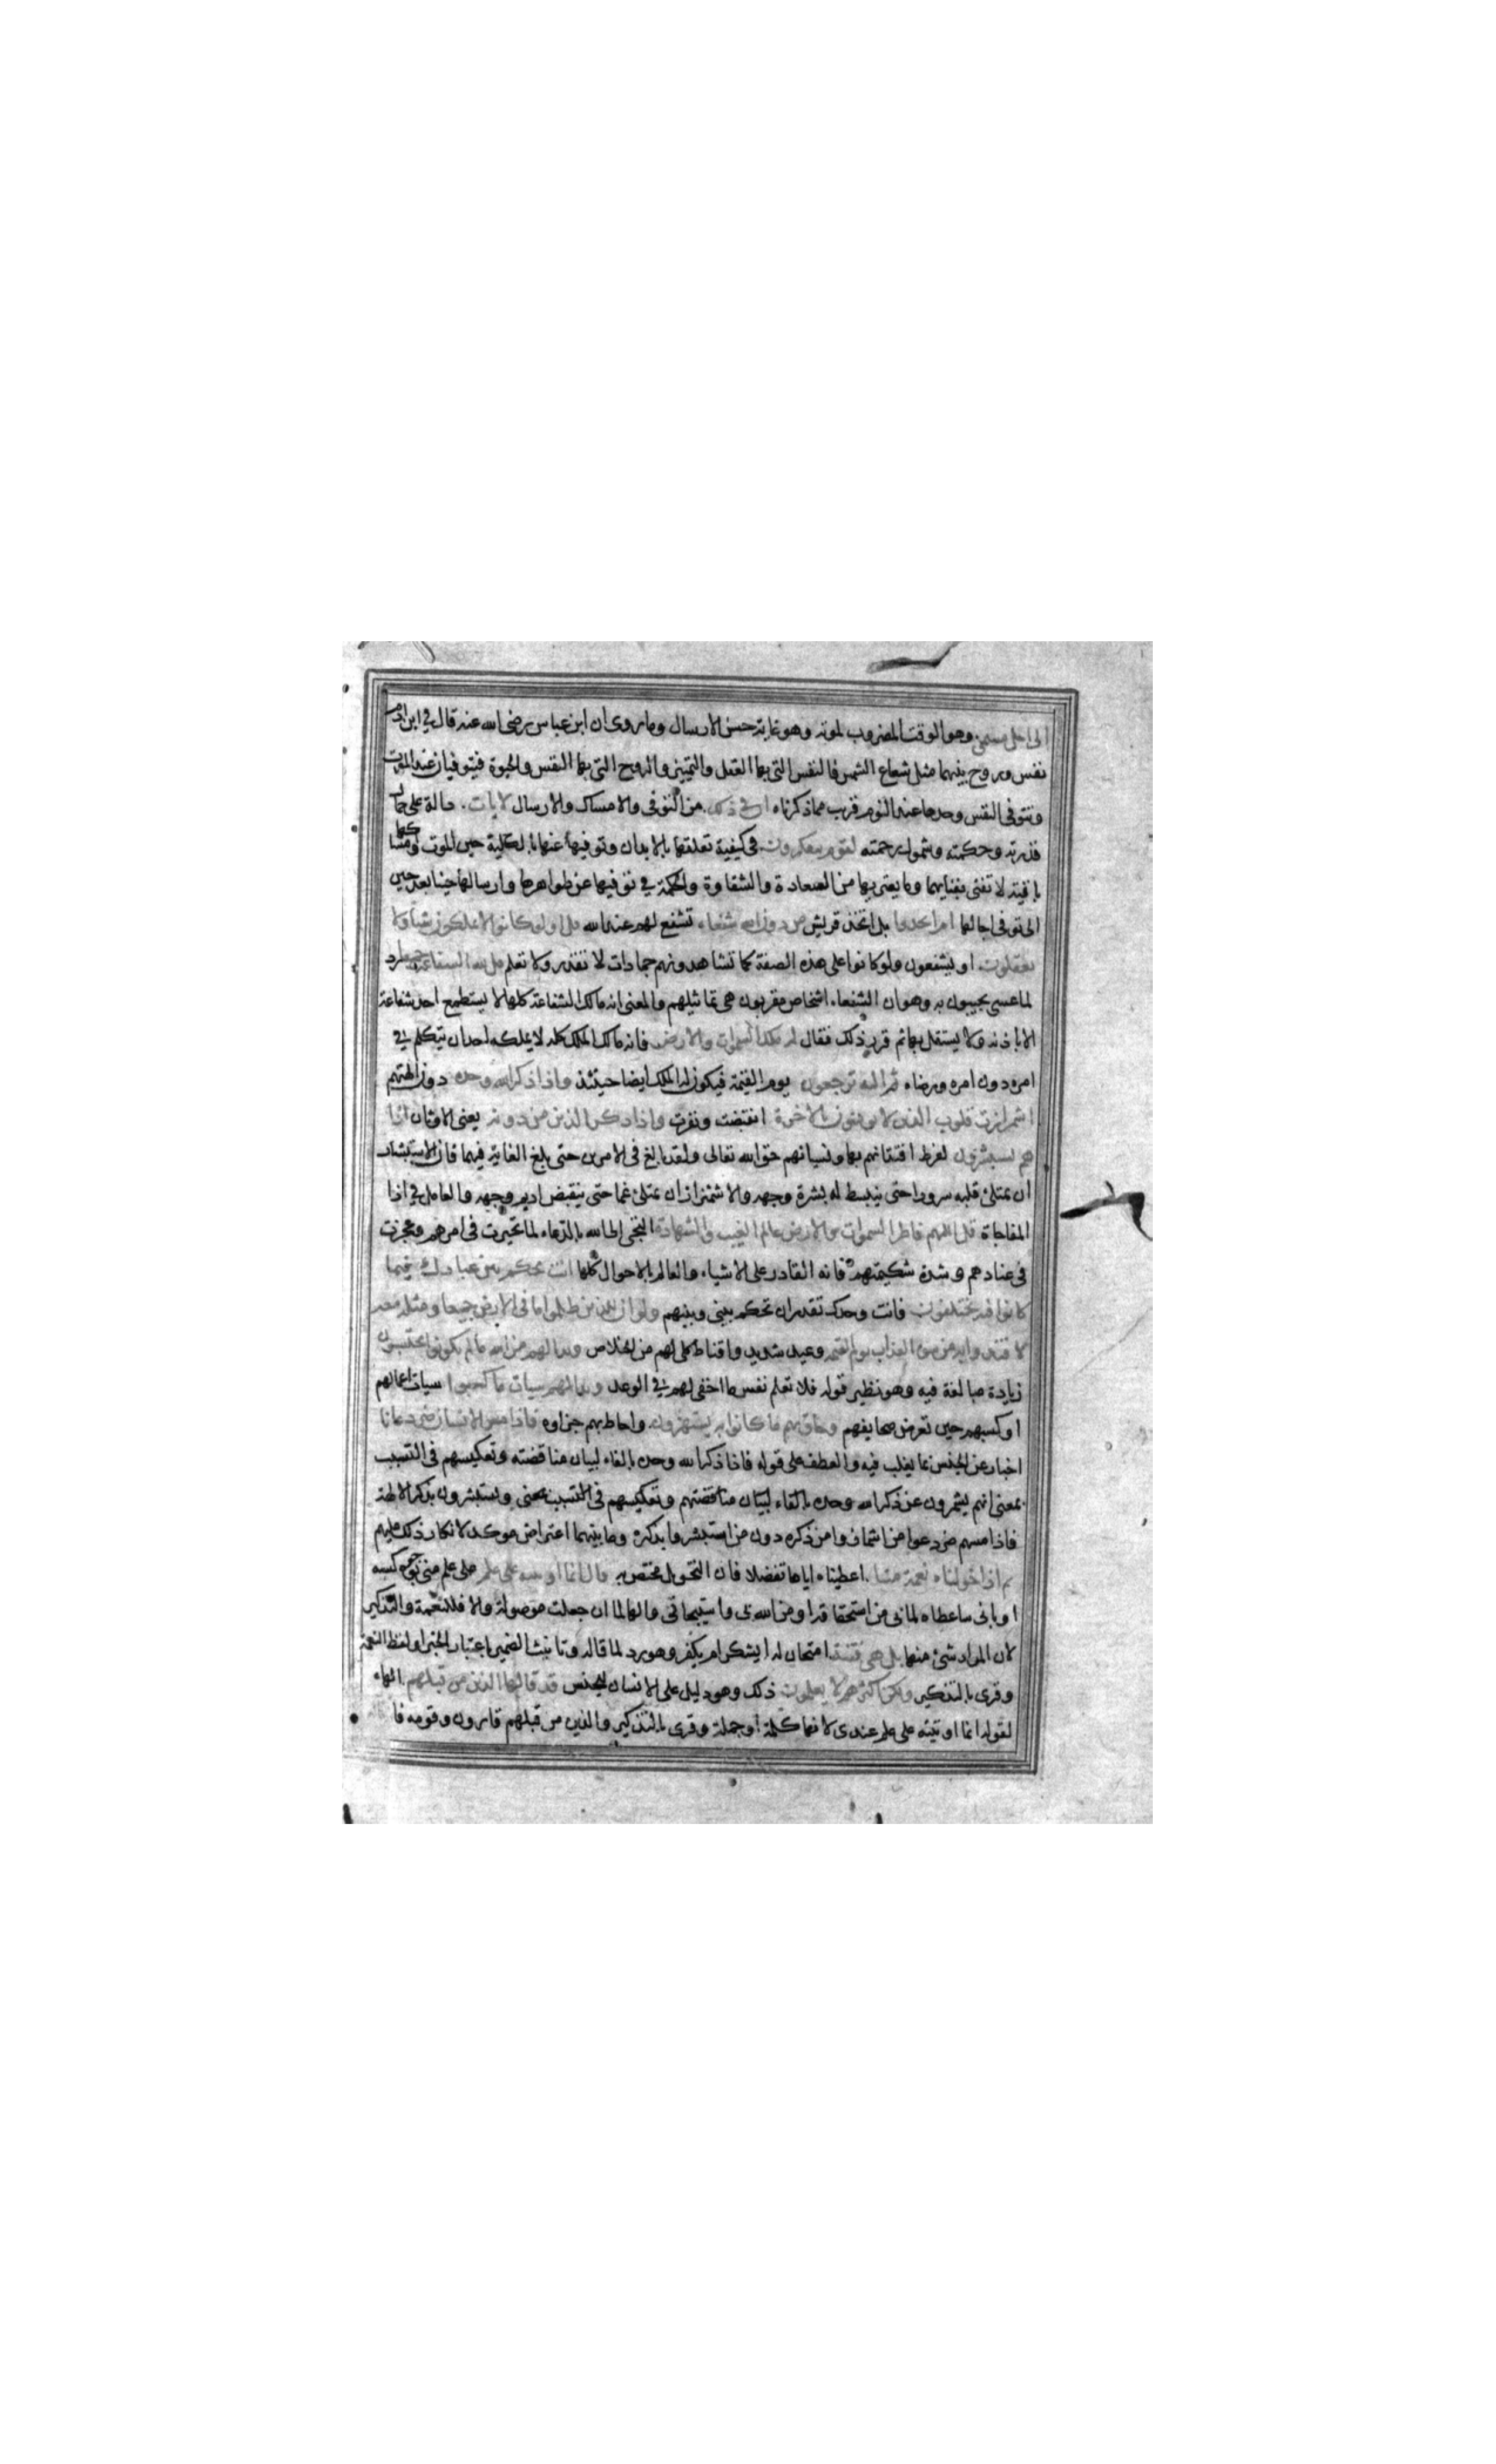 الى اجل مسمى وهو الوقت المضروب لموته وهو غاية حسن الارسال وما روى ان ابن عباس رضى الله عنه قال في ابن ادم
نفس وروح بينهما مثل شعاع الشمس فالنفس التى بها العقل والتمييز والروح التى بها النفس والحيوة فيتوفيان عند الموت
وتتوفى النفس وحدها عند النوم قرب مما ذكرناه ان في ذلك من التوفى والامساك والارسال لايات دالة على كمال
قدرته وحكمته وشمول رحمته لقوم يتفكرون في كيفية تعلقها بالابدان وتوفيها عنها بالكلية حين الموت وامساكها
باقية لا تفنى بفنائها وما يعتريها من السعادة والشقاوة والحكمة في توفيها عن ظواهرها وارسالها حينا بعد حين
الى توفى اجالها ام اتخذوا بل اتخذ قريش من دون الله شفعاء تشفع لهم عند الله قل اولو كانوا لا يملكون شيأ ولا
يعقلون او يشفعون ولو كانوا على هذه الصفة كما تشاهدونهم جمادات لا تقدر ولا تعلم قل لله الشفاعة جميعا رد
لما عسى يجيبون به وهو ان الشفعاء اشخاص مقربون هى تماثيلهم والمعنى انه مالك الشفاعة كلها لا يستطيع احد شفاعة
الا باذنه ولا يستقل بها ثم قرر ذلك فقال له ملك السموات والارض فانه مالك الملك كله لا يملكه احد ان يتكلم في
امره دون امره ورضاه ثم اليه ترجعون يوم القيمة فيكون له الملك ايضا حينئذ واذا ذكر الله وحده دون الهتهم
اشمأزت قلوب الذين لا يومنون بالاخرة انقبضت ونفرت واذا ذكر الذين من دونه يعنى الاوثان اذا
هم يستبشرون لفرط افتتانهم بها ونسيانهم حق الله تعالى ولقد بالغ في الامرين حتى بلغ الغاية فيهما فان الاستبشار
ان يمتلئ قلبه سرورا حتى ينبسط له بشرة وجهه والاشمئزاز ان يمتلئ غما حتى ينقبض اديم وجهه والعامل في اذا
المفاجاة قل اللهم فاطر السموات والارض عالم الغيب والشهادة التجئ الى الله بالدعاء لما تحيرت في امرهم وعجزت
في عنادهم وشدة شكيمتهم فانه القادر على الاشياء والعالم بالاحوال كلها انت تحكم بين عبادك فيما
كانوا فيه يختلفون فانت وحدك تقدر ان تحكم بينى وبينهم ولو ان للذين ظلموا ما في الارض جميعا ومثله معه
لافتدوا به من سوء العذاب يوم القيمة وعيد شديد واقناط كلى لهم من الخلاص وبدا لهم من الله ما لم يكونوا يحتسبون
زيادة مبالغة فيه وهو نظير قوله فلا تعلم نفس ما اخفى لهم في الوعد وبدا لهم سيات ما كسبوا سيات اعمالهم
او كسبهم حين تعرض صحايفهم وحاق بهم ما كانوا به يستهزؤن واحاط بهم جزاوه فاذا مس الانسان ضر دعانا
اخبار عن الجنس بما يغلب فيه والعطف على قوله فاذا ذكر الله وحده بالفاء لبيان مناقضته وتعكيسهم في التسبب
بمعنى انهم يشمئزون عن ذكر الله وحده بالفاء لبيان مناقضتهم وتعكيسهم في التسبب بمعنى ويستبشرون بذكر الالهة
فاذا مسهم ضر دعوا من اشمأزوا من ذكره دون من استبشروا بذكره وما بينهما اعتراض موكد لانكار ذلك عليهم
ثم اذا خولناه نعمة منا اعطيناه اياها تفضلا فان التخويل مختص به قال انما اوتيته على علم على علم منى بوجوه كسبه
او بانى ساعطاه لمانى من استحقاقه او من الله بى واستيجابى والها لما ان جعلت موصولة والا فللنعمة والتذكير
لان المراد شئ منها بل هى فتنة امتحان له ايشكر ام يكفر وهو رد لما قاله وتانيث الضمير باعتبار الخبر او لفظ النعمة
وقرى بالتذكير ولكن اكثرهم لا يعلمون ذلك وهو دليل على الانسان للجنس قد قالها الذين من قبلهم الهاء
لقوله انما اوتيته على علم عندى لانها كلمة او جملة وقرى بالتذكير والذين من قبلهم قارون وقومه فا